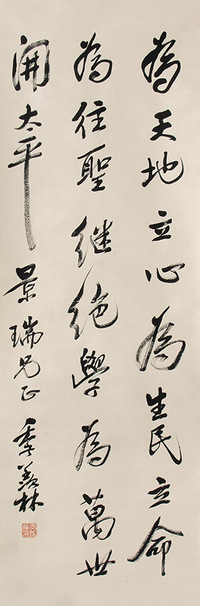 為天地立心為生民立命
為往聖继絶學為萬世
開太平
景瑞兄正 季羡林